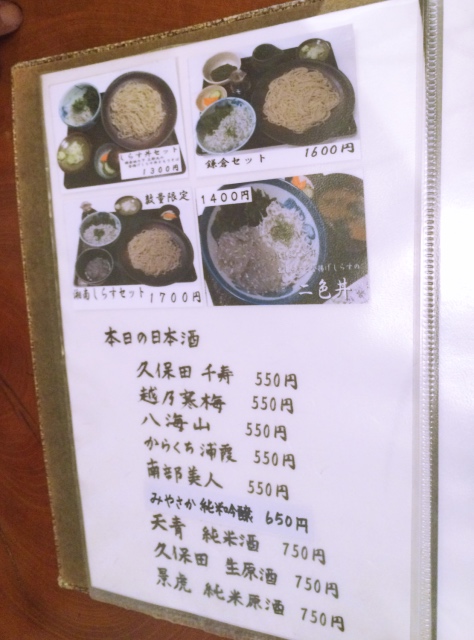 しらす丼セット
1300円
鎌倉セット 1600円
数量限定
湘南しらすセット 1700円
1400円
二色丼
本日の日本酒
久保田 千寿 550円
越乃寒梅 550円
八海山 550円
からくち浦霞 550円
南部美人 550円
みやさか純米吟醸 650円
天青 純米酒 750円
久保田 生原酒 750円
景虎 純米原酒 750円